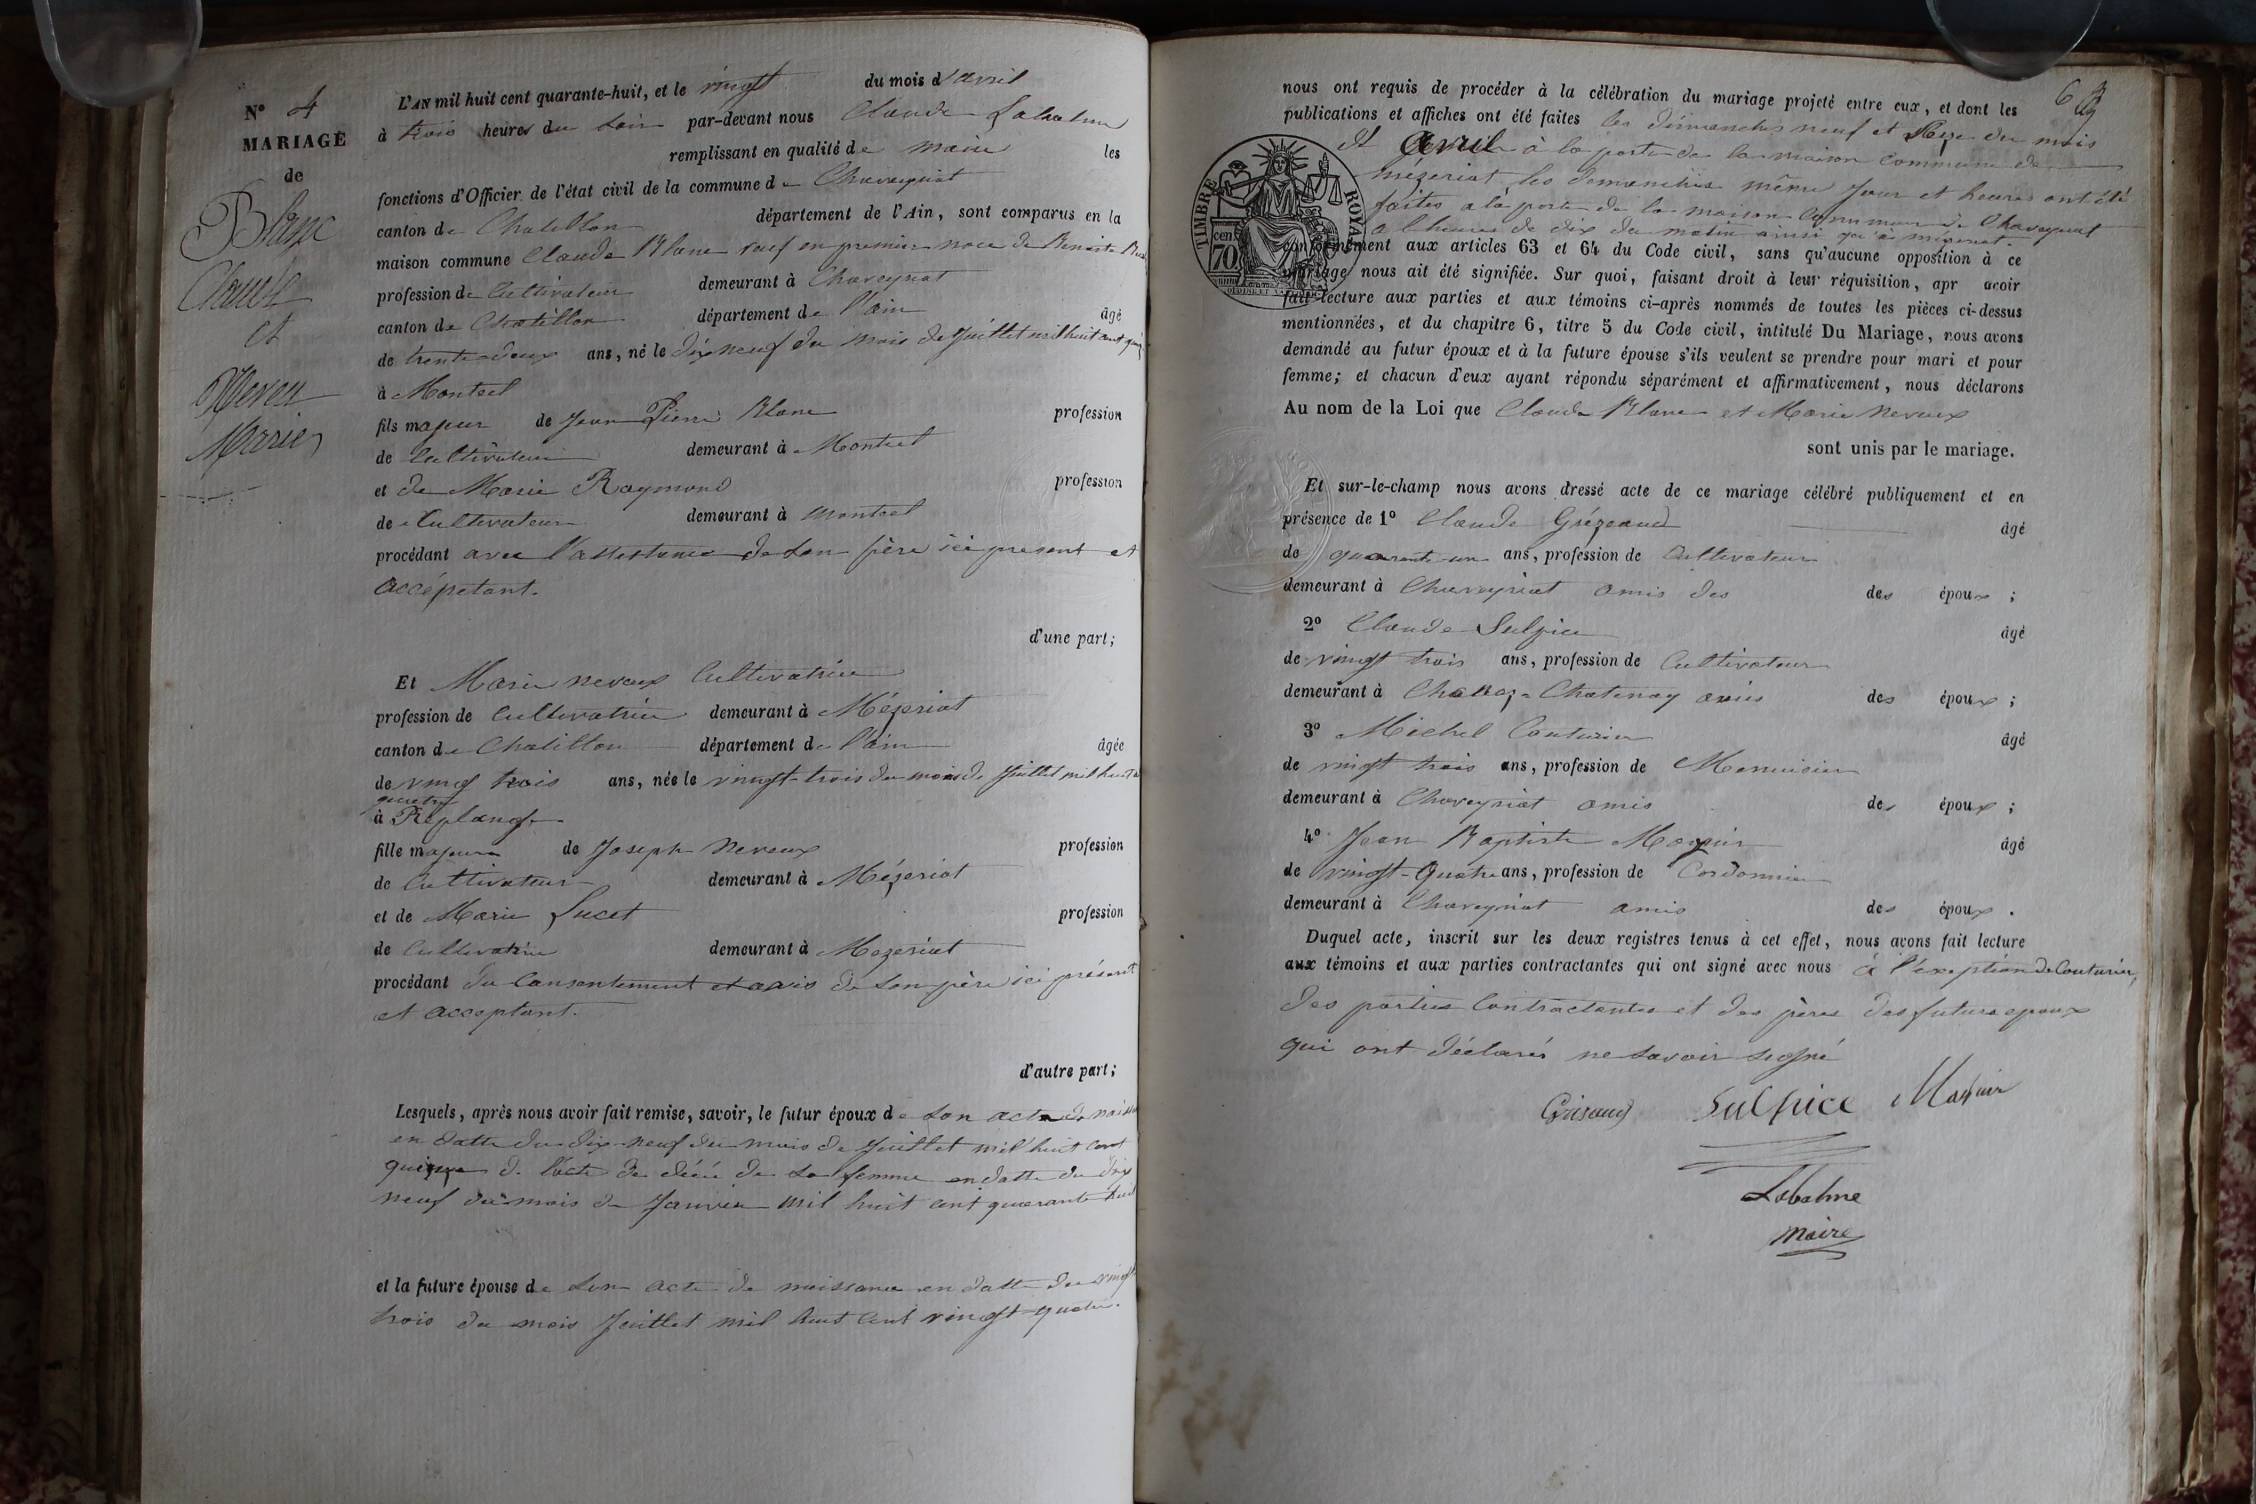 N° 4
MARIAGE
de
Blanc
Claude
et
Neveu
Marie
L'AN mil huit cent quarante-huit, et le vingt du mois d'avril
à trois heures du soir par-devant nous Claude Labalme
remplissant en qualité de maire les
fonctions d'Officier de l'état civil de la commune de Chaveyriat
canton de Chatillon département de l'Ain, sont comparus en la
maison commune Claude Blanc veuf en premier noce de Benoite
profession de Cultivateur demeurant à Chaveyriat
canton de Chatillon département de l'ain âgé
de trente deux ans, né le dix neuf du mois de Juillet mil huit cent quinze
à Montcel
fils majeur de Jean Pierre Blanc profession
de Cultivateur demeurant à Montcel
et de Marie Raymond profession
de Cultivateur demeurant à Montcel
procédant avec l'assistance de son père ici present et
accépetant.
d'une part;
Et Marie neveux Cultivatrice
profession de Cultivatrice demeurant à Mézériat
canton de Chatillon département de l'ain âgée
de vingt trois ans, née le vingt-trois du mois de Juillet mil huit
quatre
à Réplange
fille majeure de Joseph Neveux profession
de Cultivateur demeurant à Mézériat
et de Marie Lucet profession
de Cultivatrice demeurant à Mezeriat
procédant du Consentement et avis de son père ici présent
et acceptant.
d'autre part;
Lesquels, après nous avoir fait remise, savoir, le futur époux de son acte de naissance
en datte du dix-neuf du mois de Juillet mil huit cent
quinze de l'acte de décé de sa femme en datte du dix
neuf du mois de Janvier mil huit cent quarante huit
et la future épouse de son acte de naissance en datte du vingt
trois du mois Juillet mil huit cent vingt-quatre.
6
nous ont requis de procéder à la célébration du mariage projeté entre eux, et dont les
publications et affiches ont été faites les dimanches neuf et seize du mois
d'Avril à la porte de la maison commune de
mézériat, les demanches même Jour et heures ont été
faites a la porte de la maison Commune de Chaveyriat
a l'heure de dix du matin ainsi qu'à mézeriat.
TIMBRE ROYAL
cen 70
conformément aux articles 63 et 64 du Code civil, sans qu'aucune opposition à ce
mariage nous ait été signifiée. Sur quoi, faisant droit à leur réquisition, apr avoir
fait lecture aux parties et aux témoins ci-après nommés de toutes les pièces ci-dessus
mentionnées, et du chapitre 6, titre 5 du Code civil, intitulé Du Mariage, nous avons
demandé au futur époux et à la future épouse s'ils veulent se prendre pour mari et pour
femme; et chacun d'eux ayant répondu séparément et affirmativement, nous déclarons
Au nom de la Loi que Claude Blanc et Marie Neveux
sont unis par le mariage.
Et sur-le-champ nous avons dressé acte de ce mariage célébré publiquement et en
présence de 1° Claude Grézeaud âgé
de quarante-un ans, profession de Cultivateur
demeurant à Chaveyriat amis des des époux ;
2° Claude Sulpice âgé
de vingt trois ans, profession de Cultivateur
demeurant à Chanoz-Chatenay amis des époux ;
3° Michel Couturier âgé
de vingt trois ans, profession de Menuisier
demeurant à Chaveyriat amis des époux ;
4° Jean Baptiste Magnin âgé
de vingt-Quatre ans, profession de Cordonnier
demeurant à Chaveyriat amis des époux .
Duquel acte, inscrit sur les deux registres tenus à cet effet, nous avons fait lecture
aux témoins et aux parties contractantes qui ont signé avec nous à l'exeption de Couturier,
des parties Contractantes et des pères des futurs epoux
qui ont déclarés ne savoir signé
Grisaud Sulpice Magnin
Labalme
maire